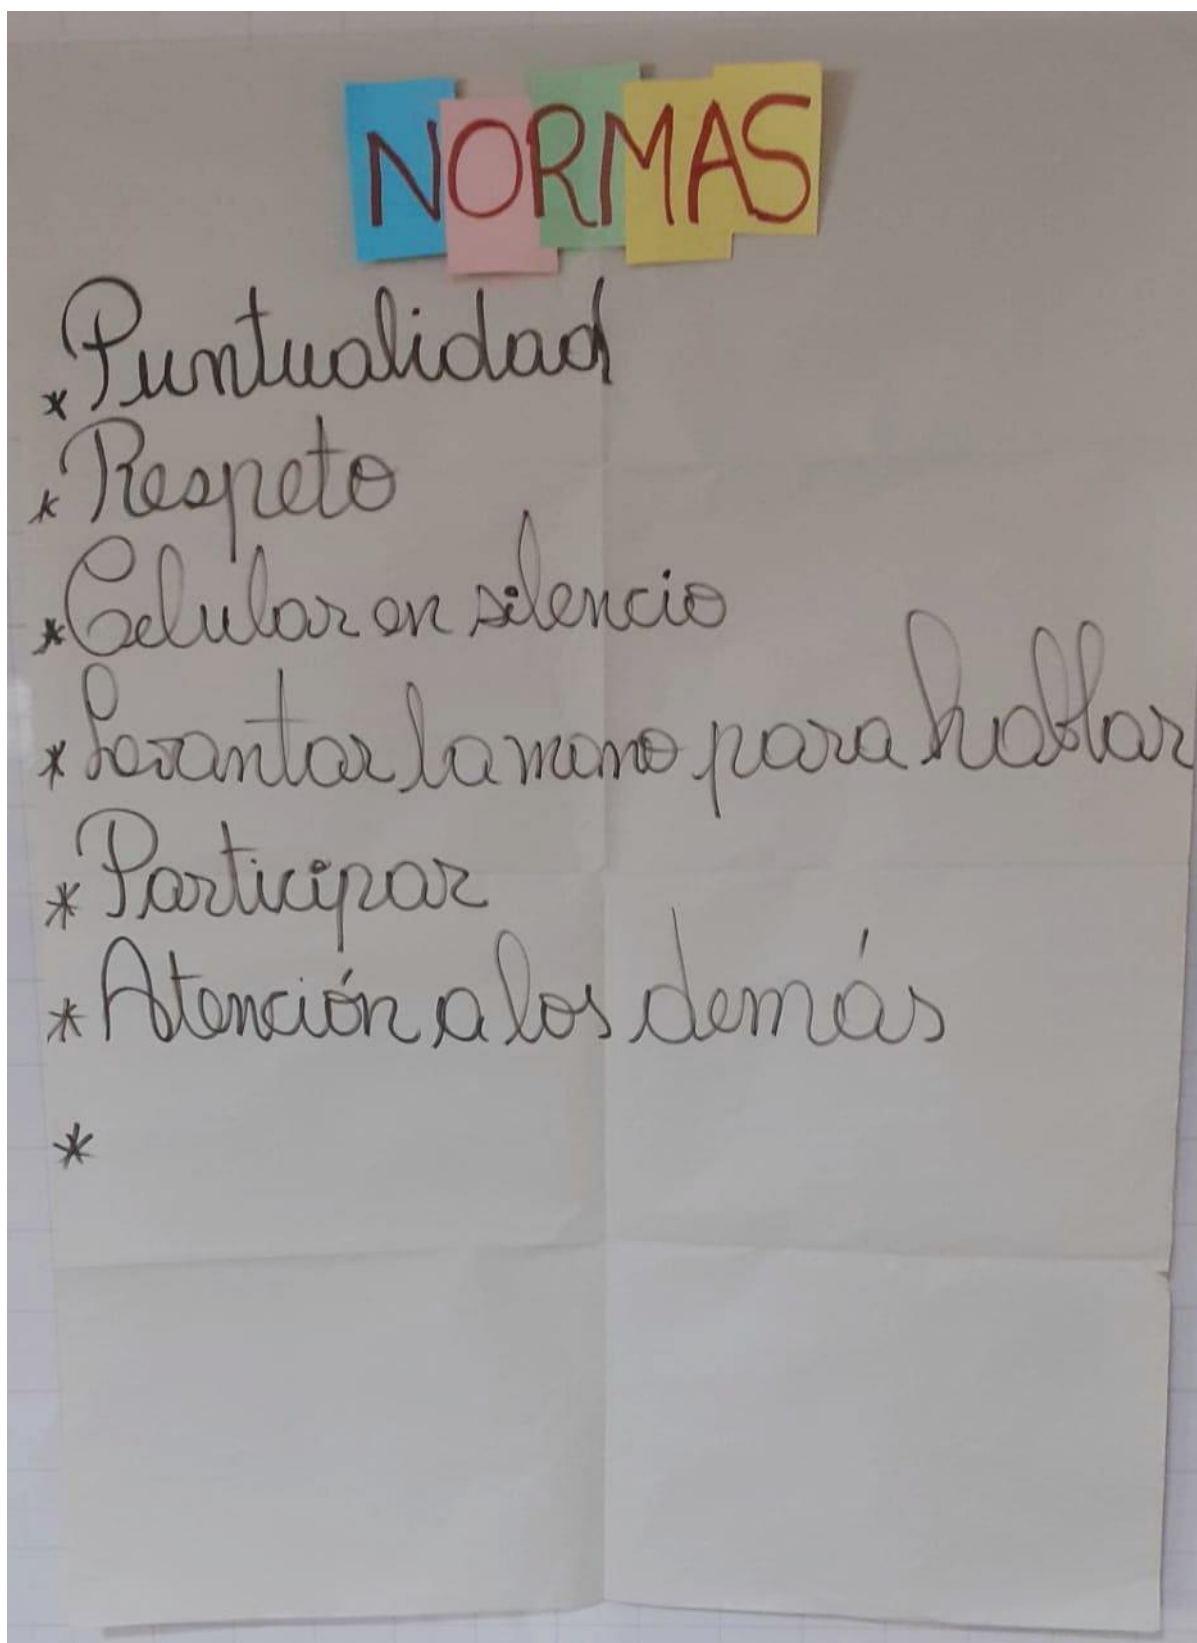 NORMAS
* Puntualidad
* Respeto
* Celular en silencio
* Levantar la mano para hablar
* Participar
* Atención a los demás
*